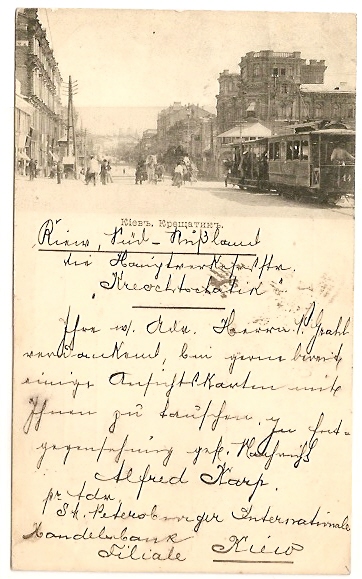 Кіевъ. Крещатикъ.
Kiew, Süd-Rußland
die Hauptverkehrsstr.
"Kreschtschatik".
Ihre w. Adr. Herrn
verdankend, bin gerne bereit,
einige Ansichtskarten mit
Ihnen zu tauschen. In Ent-
gegensehung gef. Nachricht
Alfred Karp.
pr. Adr.
St. Petersburger Internationale
Handelsbank
Filiale Kiew